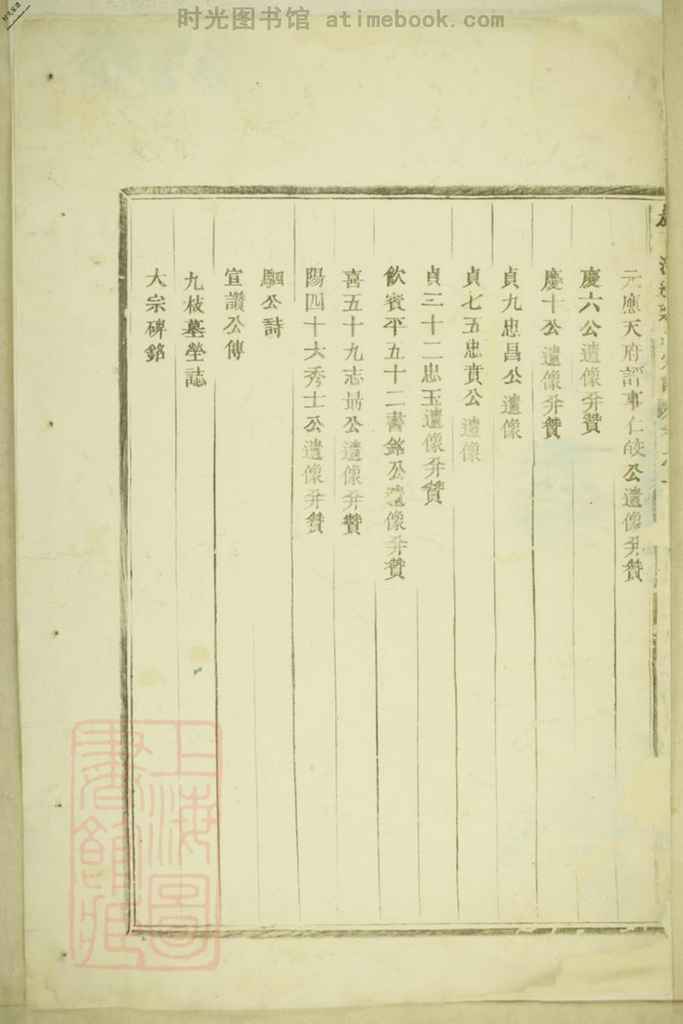 时光图书馆 atimebook.com
元應天府謂事仁皎公遺像并贊
慶六公遺像并贊
慶十公遺像并贊
貞九忠昌公遺像
貞七五忠賁公遺像
貞三十二忠玉遺像并贊
飲賓平五十二書銘公遺像并贊
喜五十九志公遺像并贊
陽四十六秀士公遺像并贊
駟公詩
宣讚公傳
九枝墓塋誌
大宗碑銘
上海圖書館藏